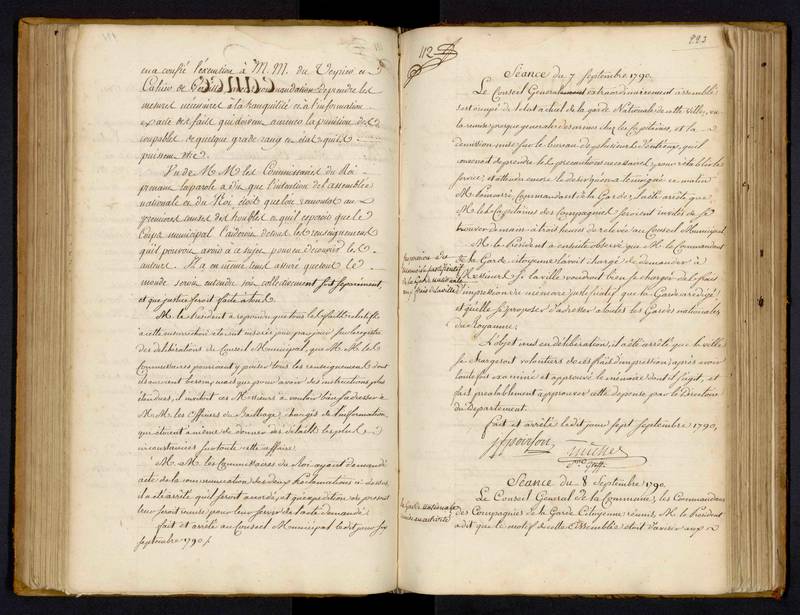 en a confié l'exécution à M. M. du Verrier et
Cahier de Gerville avec recommandation de prendre les
mesures nécessaires à la tranquilité et à l'information
exacte des faits qui doivent amener la punition des
coupables de quelque grade, rang ou état qu'ils
puissent être.
L'un de M. M. les Commissaires du Roi
prenant la parole a dit que l'intention de l'assemblée
nationale et du Roi étoit que l'on remontat aux
premières causes des troubles et qu'il espéroit que le
Corps municipal l'aideroit de tous les renseignements
qu'il pouvoit avoir à ce sujet pour en découvrir les
auteurs. Il a en même tems assuré que tout le
monde seroit entendu soit collectivement soit séparément,
et que justice seroit faite à tous.
M. le Président a répondu que tous les faits relatifs
à cette insurrection étoient insérés jour par jour sur le registre
des délibérations du Conseil Municipal, que M. M. les
Commissaires pourroient y puiser tous les renseignements dont
ils auroient besoin, mais que pour avoir des instructions plus
étendues, il invitoit ces Messieurs à vouloir bien s'adresser à
M. M. les officiers du Bailliage, chargés de l'information,
qui étoient à même de donner des détails les plus
circonstanciés sur toute cette affaire.
M. M. les Commissaires du Roi ayant demandé
acte de la communication des deux Proclamations ci dessus
il a été arrêté qu'il seroit accordé, et qu'expédition du présent
leur seroit remise pour leur servir de l'acte demandé.
fait et arrêté au Conseil Municipal ledit jour six
septembre 1790.
112
223
Séance du 7 Septembre 1790.
Le Conseil General extraordinairement assemblé
s'est occupé de l'état actuel de la garde Nationale de cette Ville, vu
la remise presque generale des armes chez les Capitaines, et la
démission mise sur le bureau de plusieurs d'entr'eux, qu'il
convenoit de prendre les précautions necessaires, pour rétablir le
service; et attendu encore le desir qu'en a témoigné ce matin
M. Commandant de la Garde, il a été arrêté que
M. M. les Capitaines des Compagnies seroient invités de se
trouver demain à trois heures de relevée au Conseil Municipal
M. le Président a ensuite observé que M. le Commandant
de la Garde citoyenne l'avoit chargé de demander à
Messieurs si la ville voudroit bien se charger des frais
d'impression du mémoire justificatif que la Garde a rédigé,
et qu'elle se propose d'adresser à toutes les Gardes nationales
du Royaume;
L'objet mis en délibération, il a été arrêté que la ville
se chargeroit volontiers des frais d'impression; après avoir
toutefois examiné et approuvé le mémoire dont il s'agit, et
fait préalablement approuver cette depense par le Directoire
du Département.
fait et arrêté ledit jour sept septembre 1790,
Impression du
mémoire justificatif
de la Garde nationale
aux frais de la ville
Séance du 8 Septembre 1790.
la Garde nationale
mise en activité
Le Conseil General de la Commune, les Commandans
des Compagnies de la Garde Citoyenne réunis, M. le Président
a dit que le motif de cette Assemblée étoit d'aviser aux